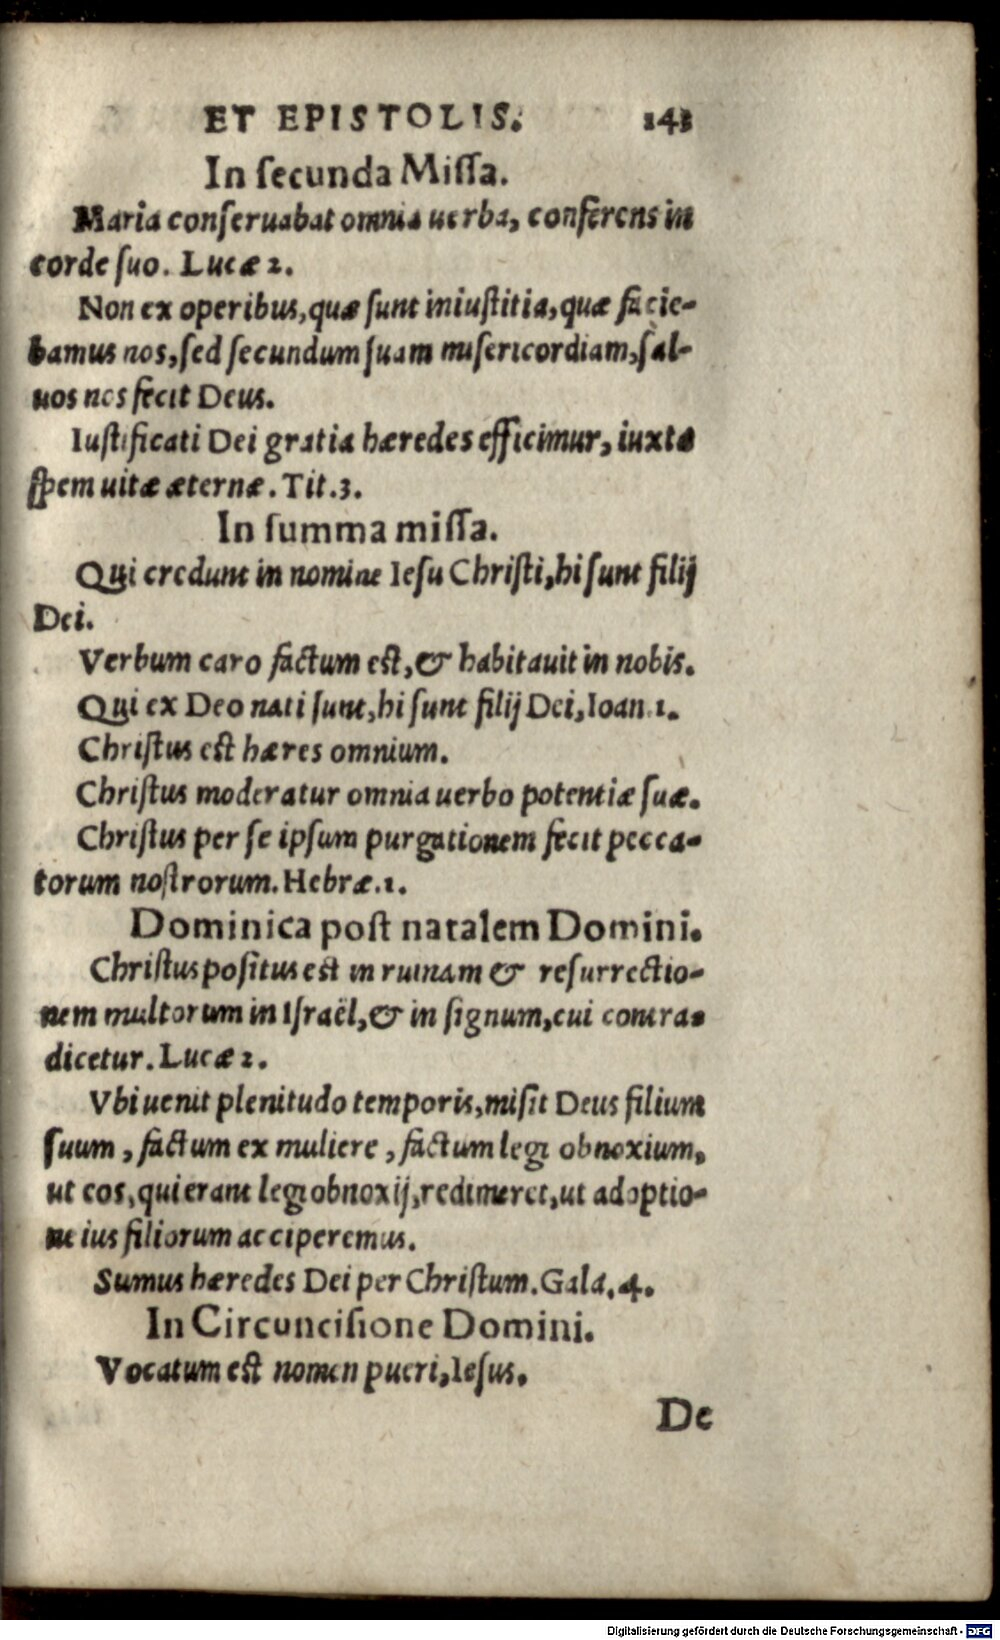 ET EPISTOLIS. 143
In ſecunda Miſſa.
Maria conſeruabat omnia uerba, conferens in
corde ſuo. Lucæ 2.
Non ex operibus, quæ ſunt iniuſtitia, quæ facie-
bamus nos, ſed ſecundum ſuam miſericordiam, ſal-
uos nos fecit Deus.
Iuſtificati Dei gratia hæredes efficimur, iuxta
ſpem uitæ æternæ. Tit. 3.
In ſumma miſſa.
Qui credunt in nomine Ieſu Chriſti, hi ſunt filij
Dei.
Verbum caro factum eſt, & habitauit in nobis.
Qui ex Deo nati ſunt, hi ſunt filij Dei, Ioan. 1.
Chriſtus eſt hæres omnium.
Chriſtus moderatur omnia uerbo potentiæ ſuæ.
Chriſtus per ſe ipſum purgationem fecit pecca-
torum noſtrorum. Hebræ. 1.
Dominica poſt natalem Domini.
Chriſtus poſitus eſt in ruinam & reſurrectio-
nem multorum in Iſraël, & in ſignum, cui contra-
dicetur. Lucæ 2.
Vbi uenit plenitudo temporis, miſit Deus filium
ſuum, factum ex muliere, factum legi obnoxium,
ut eos, qui erant legi obnoxij, redimeret, ut adoptio-
ne ius filiorum acciperemus.
Sumus hæredes Dei per Chriſtum. Gala. 4.
In Circunciſione Domini.
Vocatum eſt nomen pueri, Ieſus.
De
Digitalisierung gefördert durch die Deutsche Forschungsgemeinschaft - DFG